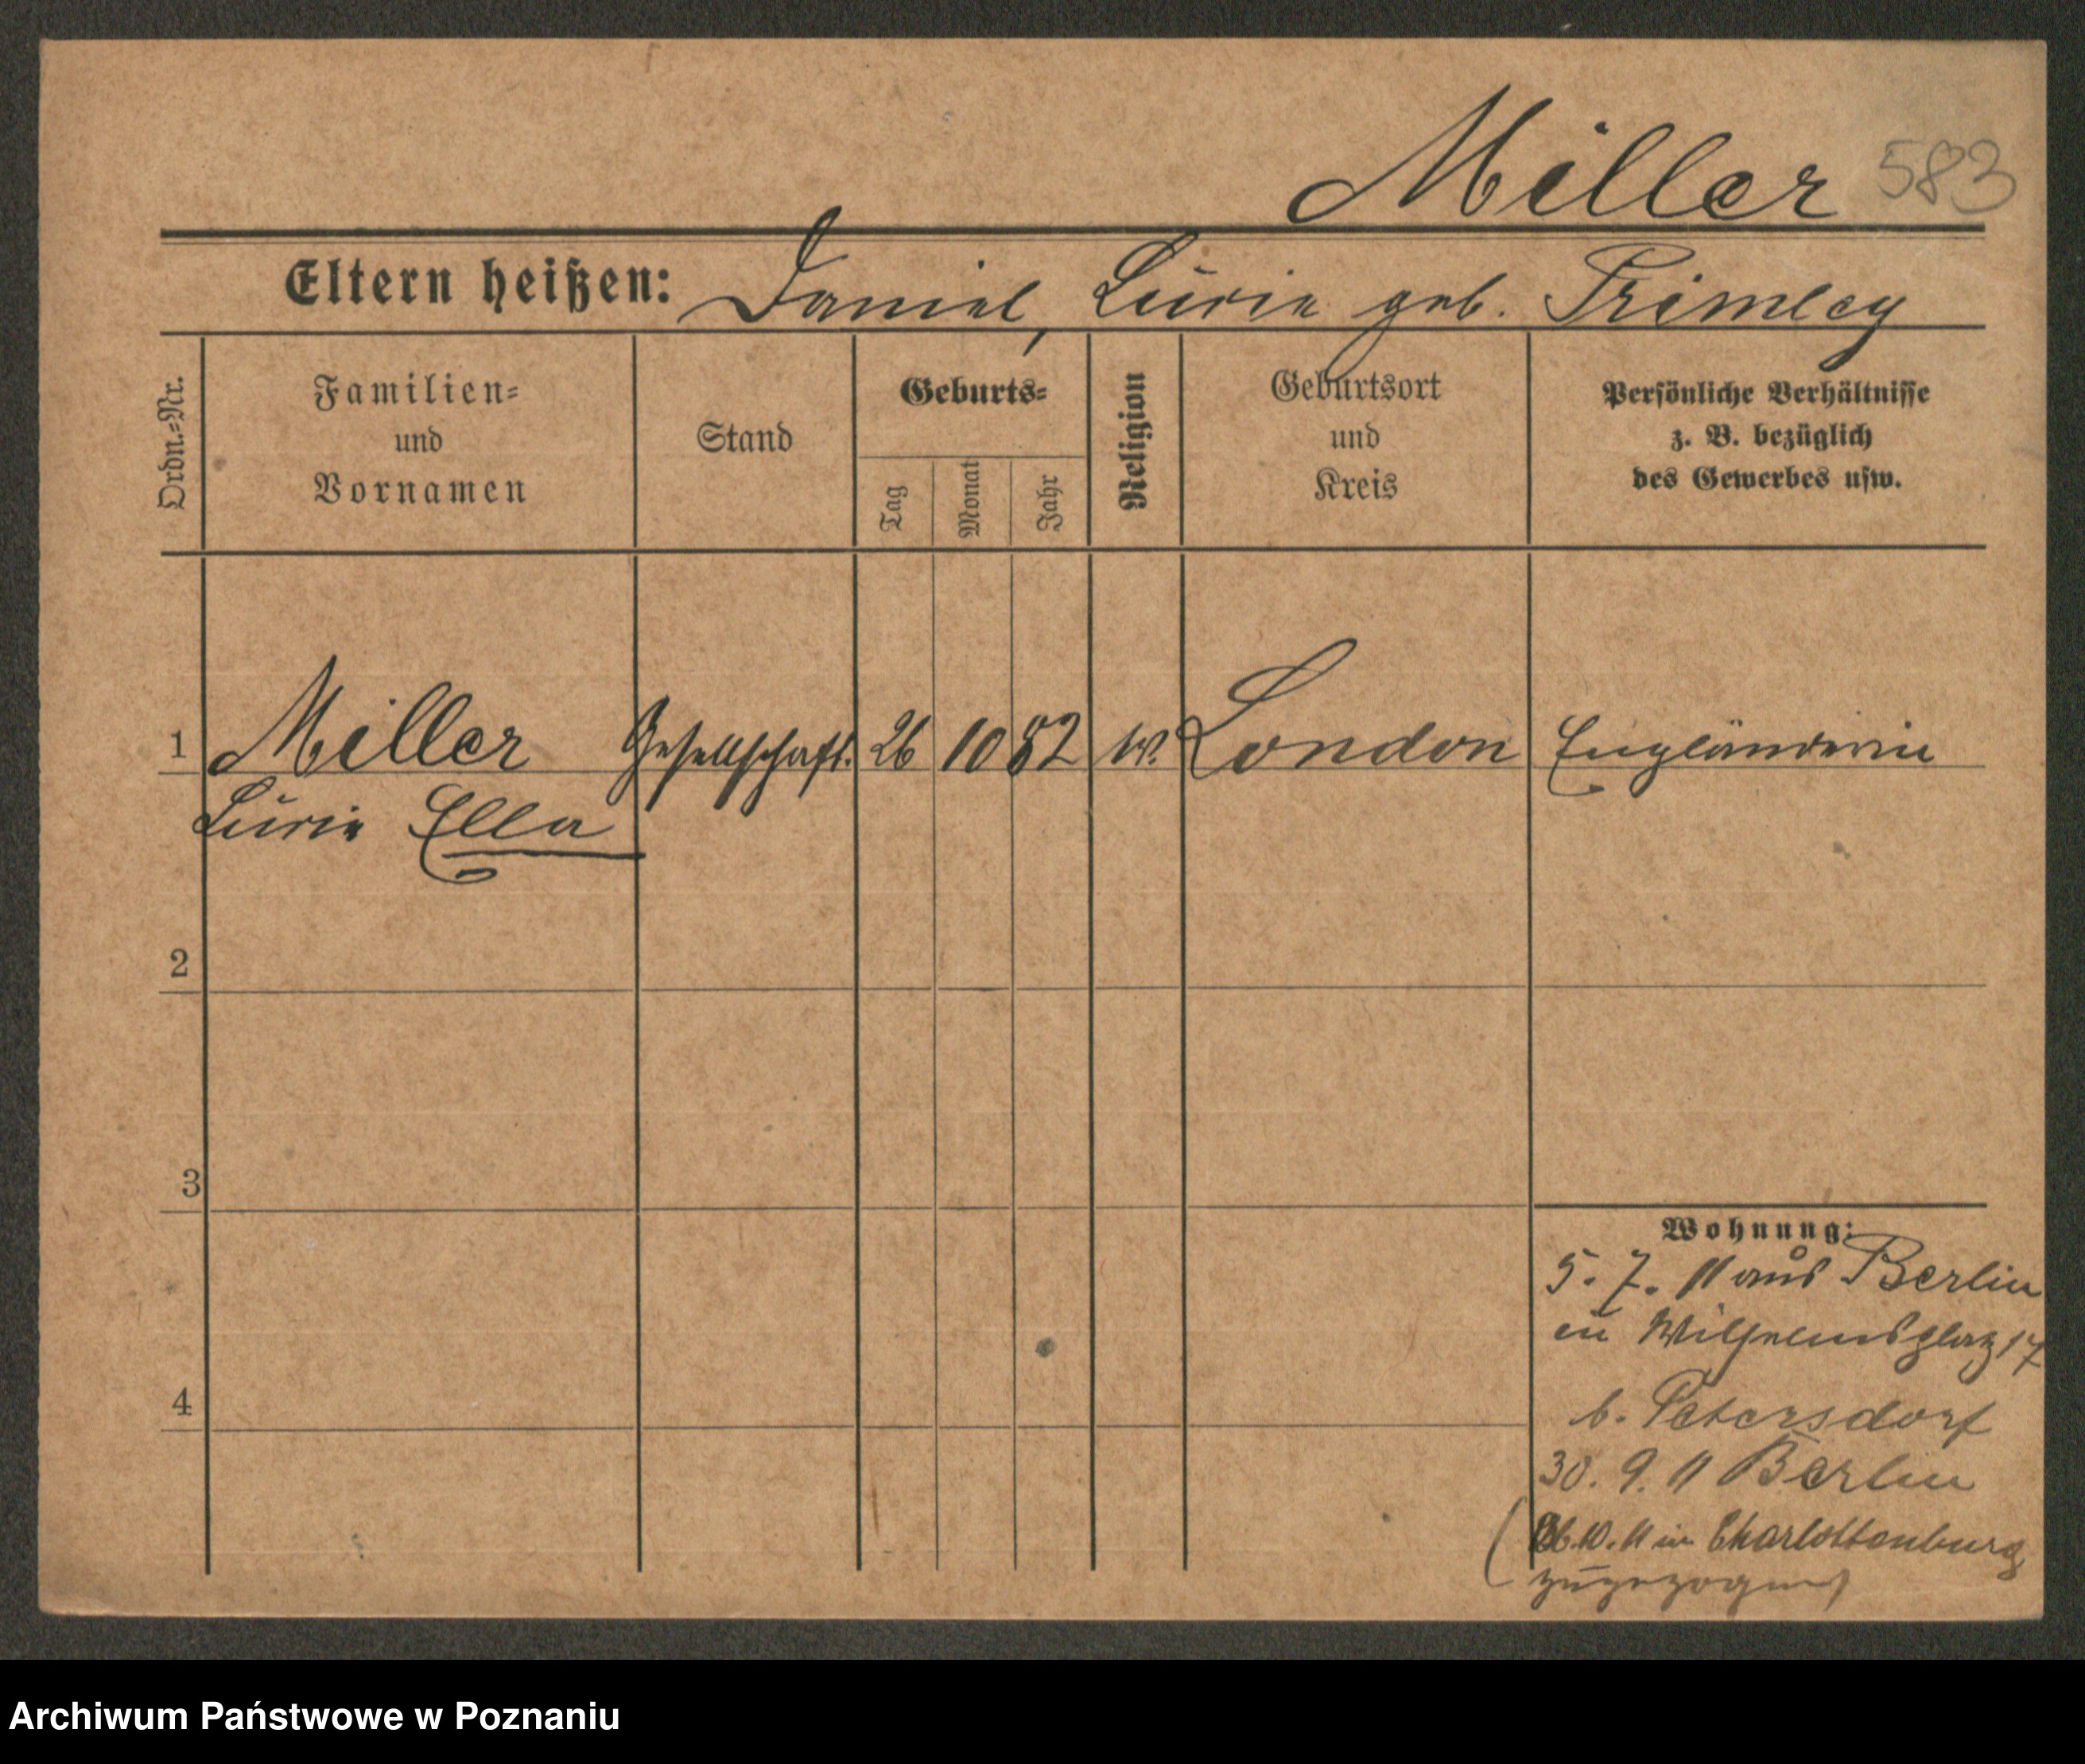 Miller 583
Eltern heißen: Daniel, Lucie geb. Primley
Ordn.=Nr.
Familien=
und
Vornamen
Stand
Geburts=
Tag
Monat
Jahr
Religion
Geburtsort
und
Kreis
Persönliche Verhältnisse
z. B. bezüglich
des Gewerbes usw.
1 Miller Gesellschaft. 26 10 82 London Engländerin
Lucie Ella
2
3
4
Wohnung:
5. 7. 11 aus Berlin
in Wilhelmsplatz 17
b. Petersdorf
30. 9. 11 Berlin
10. 11 in Charlottenburg
zugezogen)
Archiwum Państwowe w Poznaniu